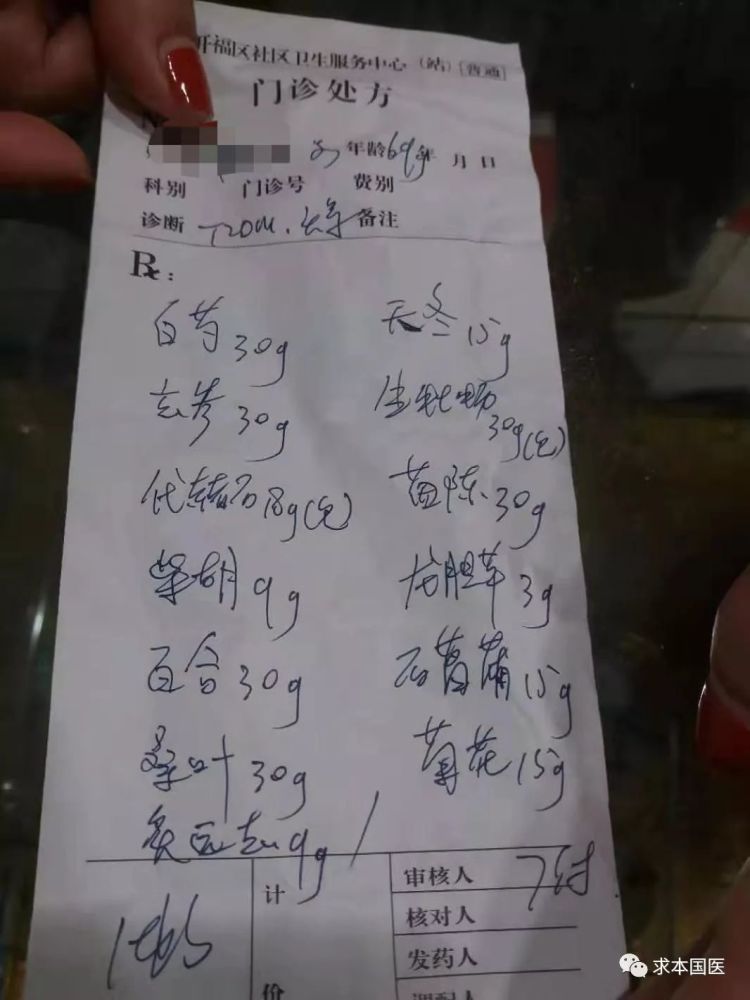 开福区社区卫生服务中心（站）[普通]
门诊处方
年龄69岁 年 月 日
科别 门诊号 费别
诊断 T2DM. 备注
R:
白芍30g 天冬15g
玄参30g 生牡蛎30g(包)
代赭石18g(包) 茵陈30g
柴胡9g 龙胆草3g
百合30g 石菖蒲15g
桑叶30g 菊花15g
炙远志9g /
计价
审核人 7付
核对人
发药人
调配人
求本国医